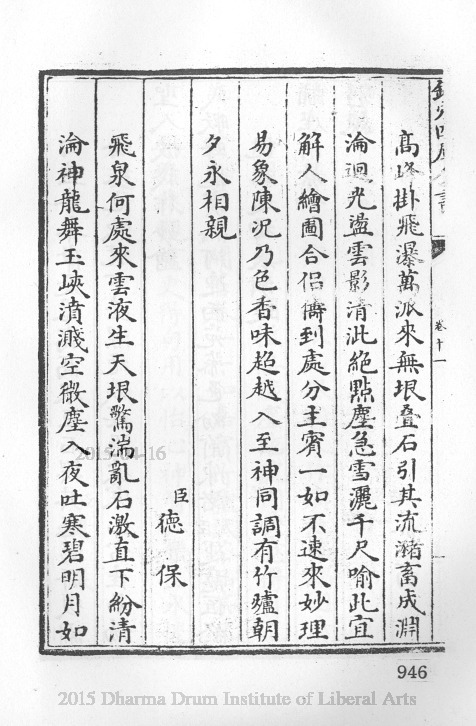 欽定四庫全書
卷十一
高峰掛飛瀑萬派來無垠叠石引其流瀦畜成淵
淪迴光盪雲影清泚絕點塵急雪灑千尺喻此宜
解人繪圖合侣儔到處分主賓一如不速來妙理
易象陳况乃色香味超越入至神同調有竹罏朝
夕永相親
臣德保
飛泉何處來雲液生天垠驚湍亂石激直下紛清
淪神龍舞玉峽濆濺空微塵入夜吐寒碧明月如
946
2015-04-16
2015 Dharma Drum Institute of Liberal Arts